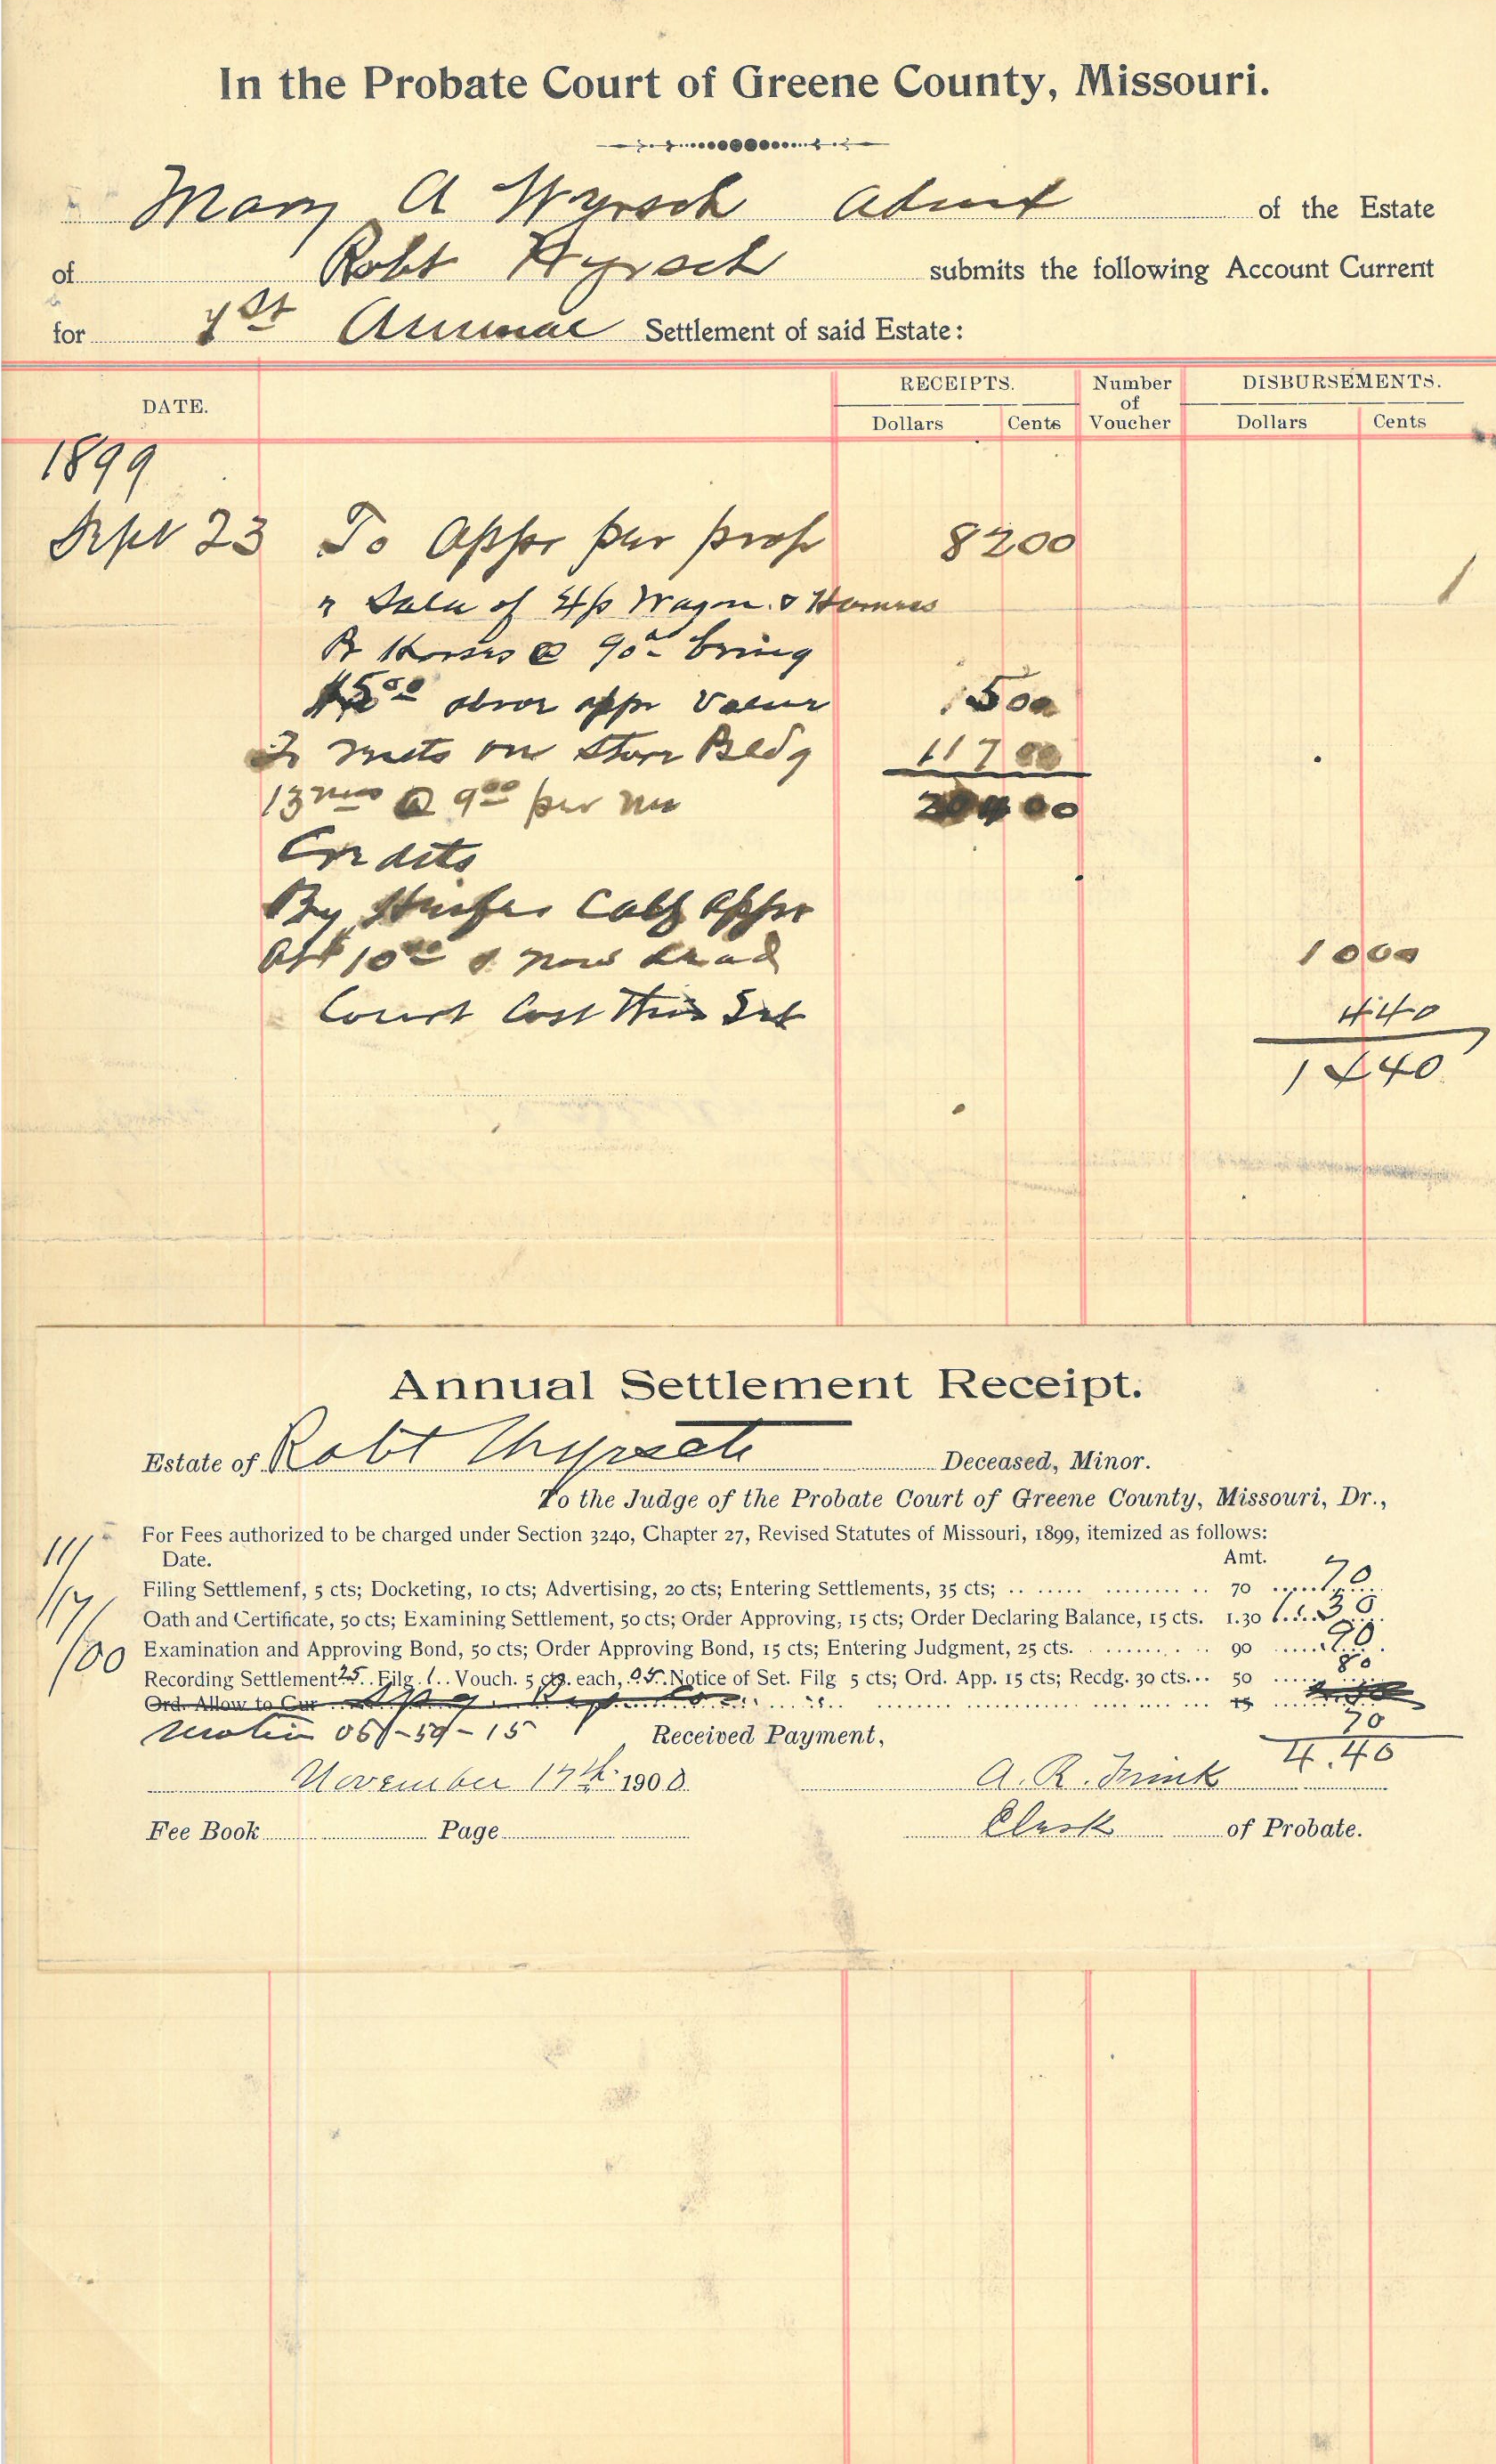 In the Probate Court of Greene County, Missouri.
Mary A Wyrsch Admx of the Estate
of Robt Wyrsch submits the following Account Current
for 1st Annual Settlement of said Estate:
DATE. RECEIPTS. Number of Voucher DISBURSEMENTS.
Dollars Cents Dollars Cents
1899
Sept 23 To Appr per prop 82 00
" Sale of Wagon & Harness
Horses @ 90 bring
$5 00 above appr Value 5 00
To rents on Store Bldg 117 00
13 mos @ 9 00 per mo 204 00
Credits
By Heifer Calf Appr
At $10 00 & now dead 10 00
Court Cost This Set 4 40
14 40
Annual Settlement Receipt.
Estate of Robt Wyrsch Deceased, Minor.
To the Judge of the Probate Court of Greene County, Missouri, Dr.,
For Fees authorized to be charged under Section 3240, Chapter 27, Revised Statutes of Missouri, 1899, itemized as follows:
11/17/00
Date. Amt.
Filing Settlement, 5 cts; Docketing, 10 cts; Advertising, 20 cts; Entering Settlements, 35 cts; 70 70
Oath and Certificate, 50 cts; Examining Settlement, 50 cts; Order Approving, 15 cts; Order Declaring Balance, 15 cts. 1.30 1.30
Examination and Approving Bond, 50 cts; Order Approving Bond, 15 cts; Entering Judgment, 25 cts. 90 90
Recording Settlement 25 Filg 1 Vouch. 5 cts. each, 05 Notice of Set. Filg 5 cts; Ord. App. 15 cts; Recdg. 30 cts. 50 80
Ord. Allow to Cur 15
Motion 05-50-15 70
Received Payment, 4.40
November 17th 1900 A. R. Frink
Fee Book Page Clerk of Probate.